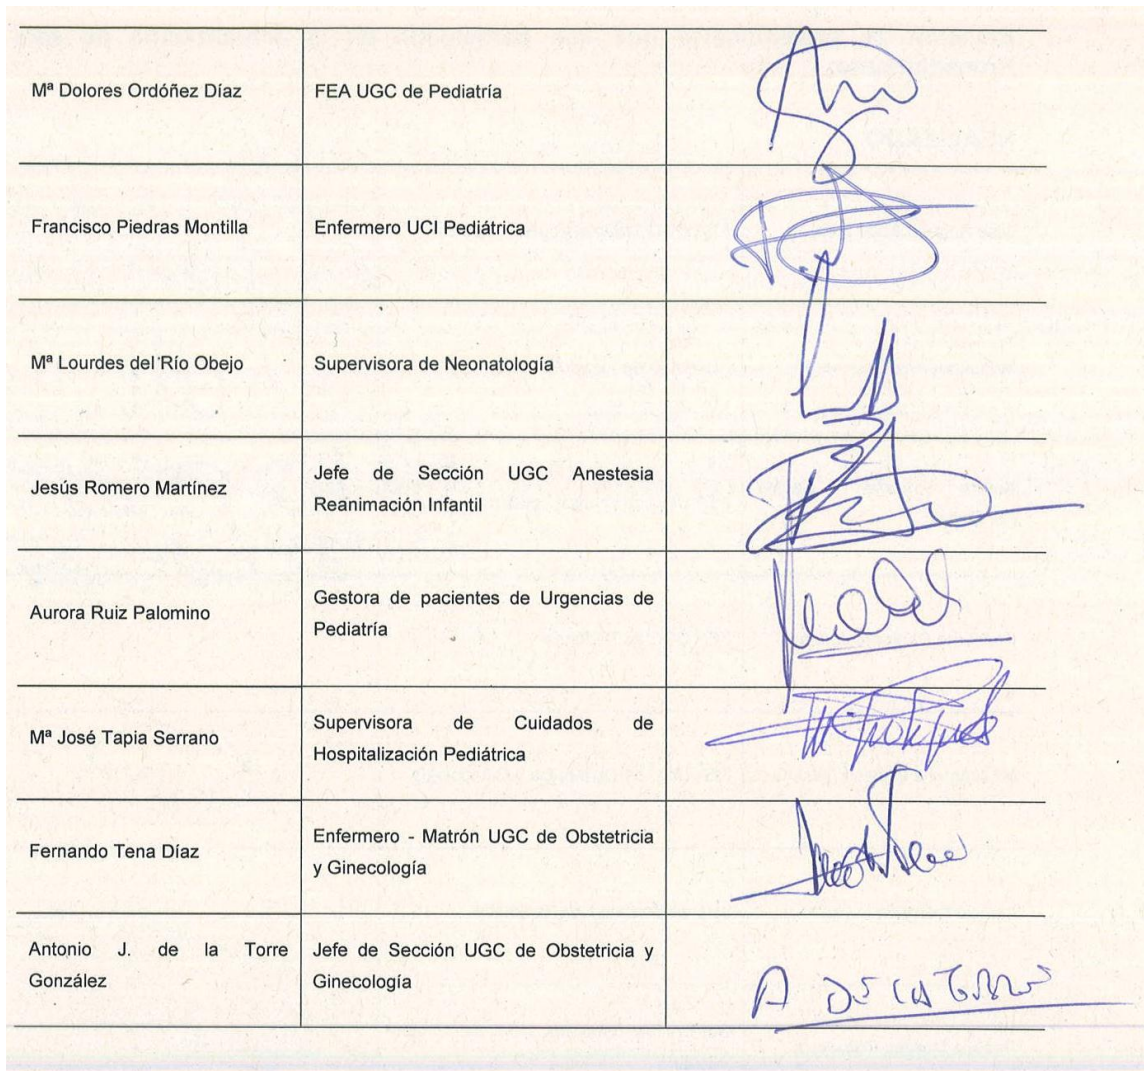 Mª Dolores Ordóñez Díaz
FEA UGC de Pediatría
Francisco Piedras Montilla
Enfermero UCI Pediátrica
Mª Lourdes del Río Obejo
Supervisora de Neonatología
Jesús Romero Martínez
Jefe de Sección UGC Anestesia
Reanimación Infantil
Aurora Ruiz Palomino
Gestora de pacientes de Urgencias de
Pediatría
Mª José Tapia Serrano
Supervisora de Cuidados de
Hospitalización Pediátrica
Fernando Tena Díaz
Enfermero - Matrón UGC de Obstetricia
y Ginecología
Antonio J. de la Torre
González
Jefe de Sección UGC de Obstetricia y
Ginecología
A DE LA TORRE